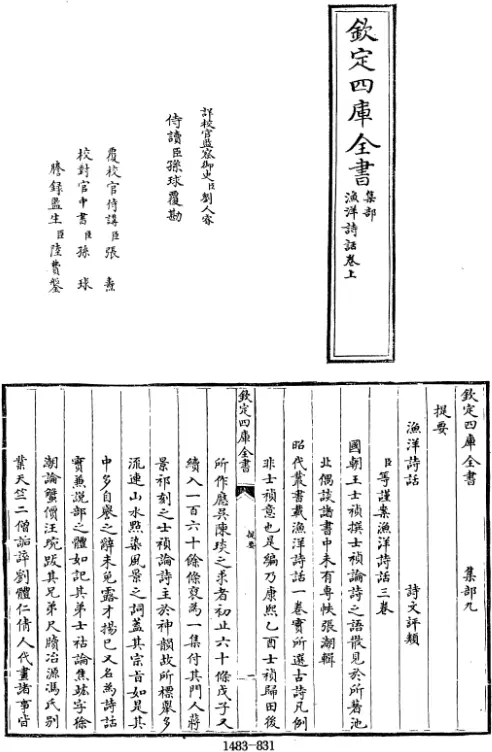 欽定四庫全書
集部
漁洋詩話卷上
詳校官監察御史臣劉人睿
侍讀臣孫球覆勘
覆校官侍講臣張燾
校對官中書臣孫球
謄錄監生臣陸費
欽定四庫全書 集部九
提要
漁洋詩話 詩文評類
臣等謹案漁洋詩話三卷
國朝王士禎撰士禎論詩之語散見於所著池
北偶談諸書中未有專帙張潮輯
昭代叢書載漁洋詩話一卷實所選古詩凡例
非士禎意也是編乃康熙乙酉士禎歸田後
欽定四庫全書 提要 一
所作應吳陳琰之求者初止六十條戊子又
續入一百六十餘條裒為一集付其門人蔣
景祁刻之士禎論詩主於神韻故所標舉多
流連山水點染風景之詞蓋其宗旨如是其
中多自譽之辭未免露才揚己又名為詩話
實兼說部之體如記其弟士祜論焦竑字徐
潮論蟹價汪琬跋其兄弟尺牘冶源馮氏別
業天竺二僧詬誶劉體仁倩人代畫諸事皆
1483-831